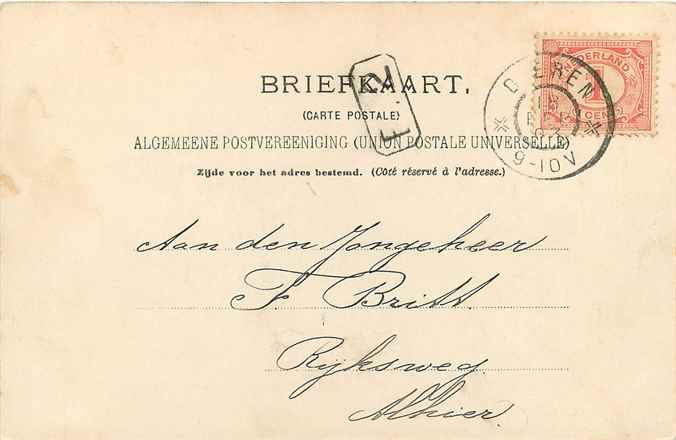 BRIEFKAART.
(CARTE POSTALE)
ALGEMEENE POSTVEREENIGING (UNION POSTALE UNIVERSELLE)
Zijde voor het adres bestemd. (Côté réservé à l'adresse.)
NEDERLAND
1
CENT
DIEREN
9-10V
Aan den Jongeheer
F. Britt.
Rijksweg
Alhier.